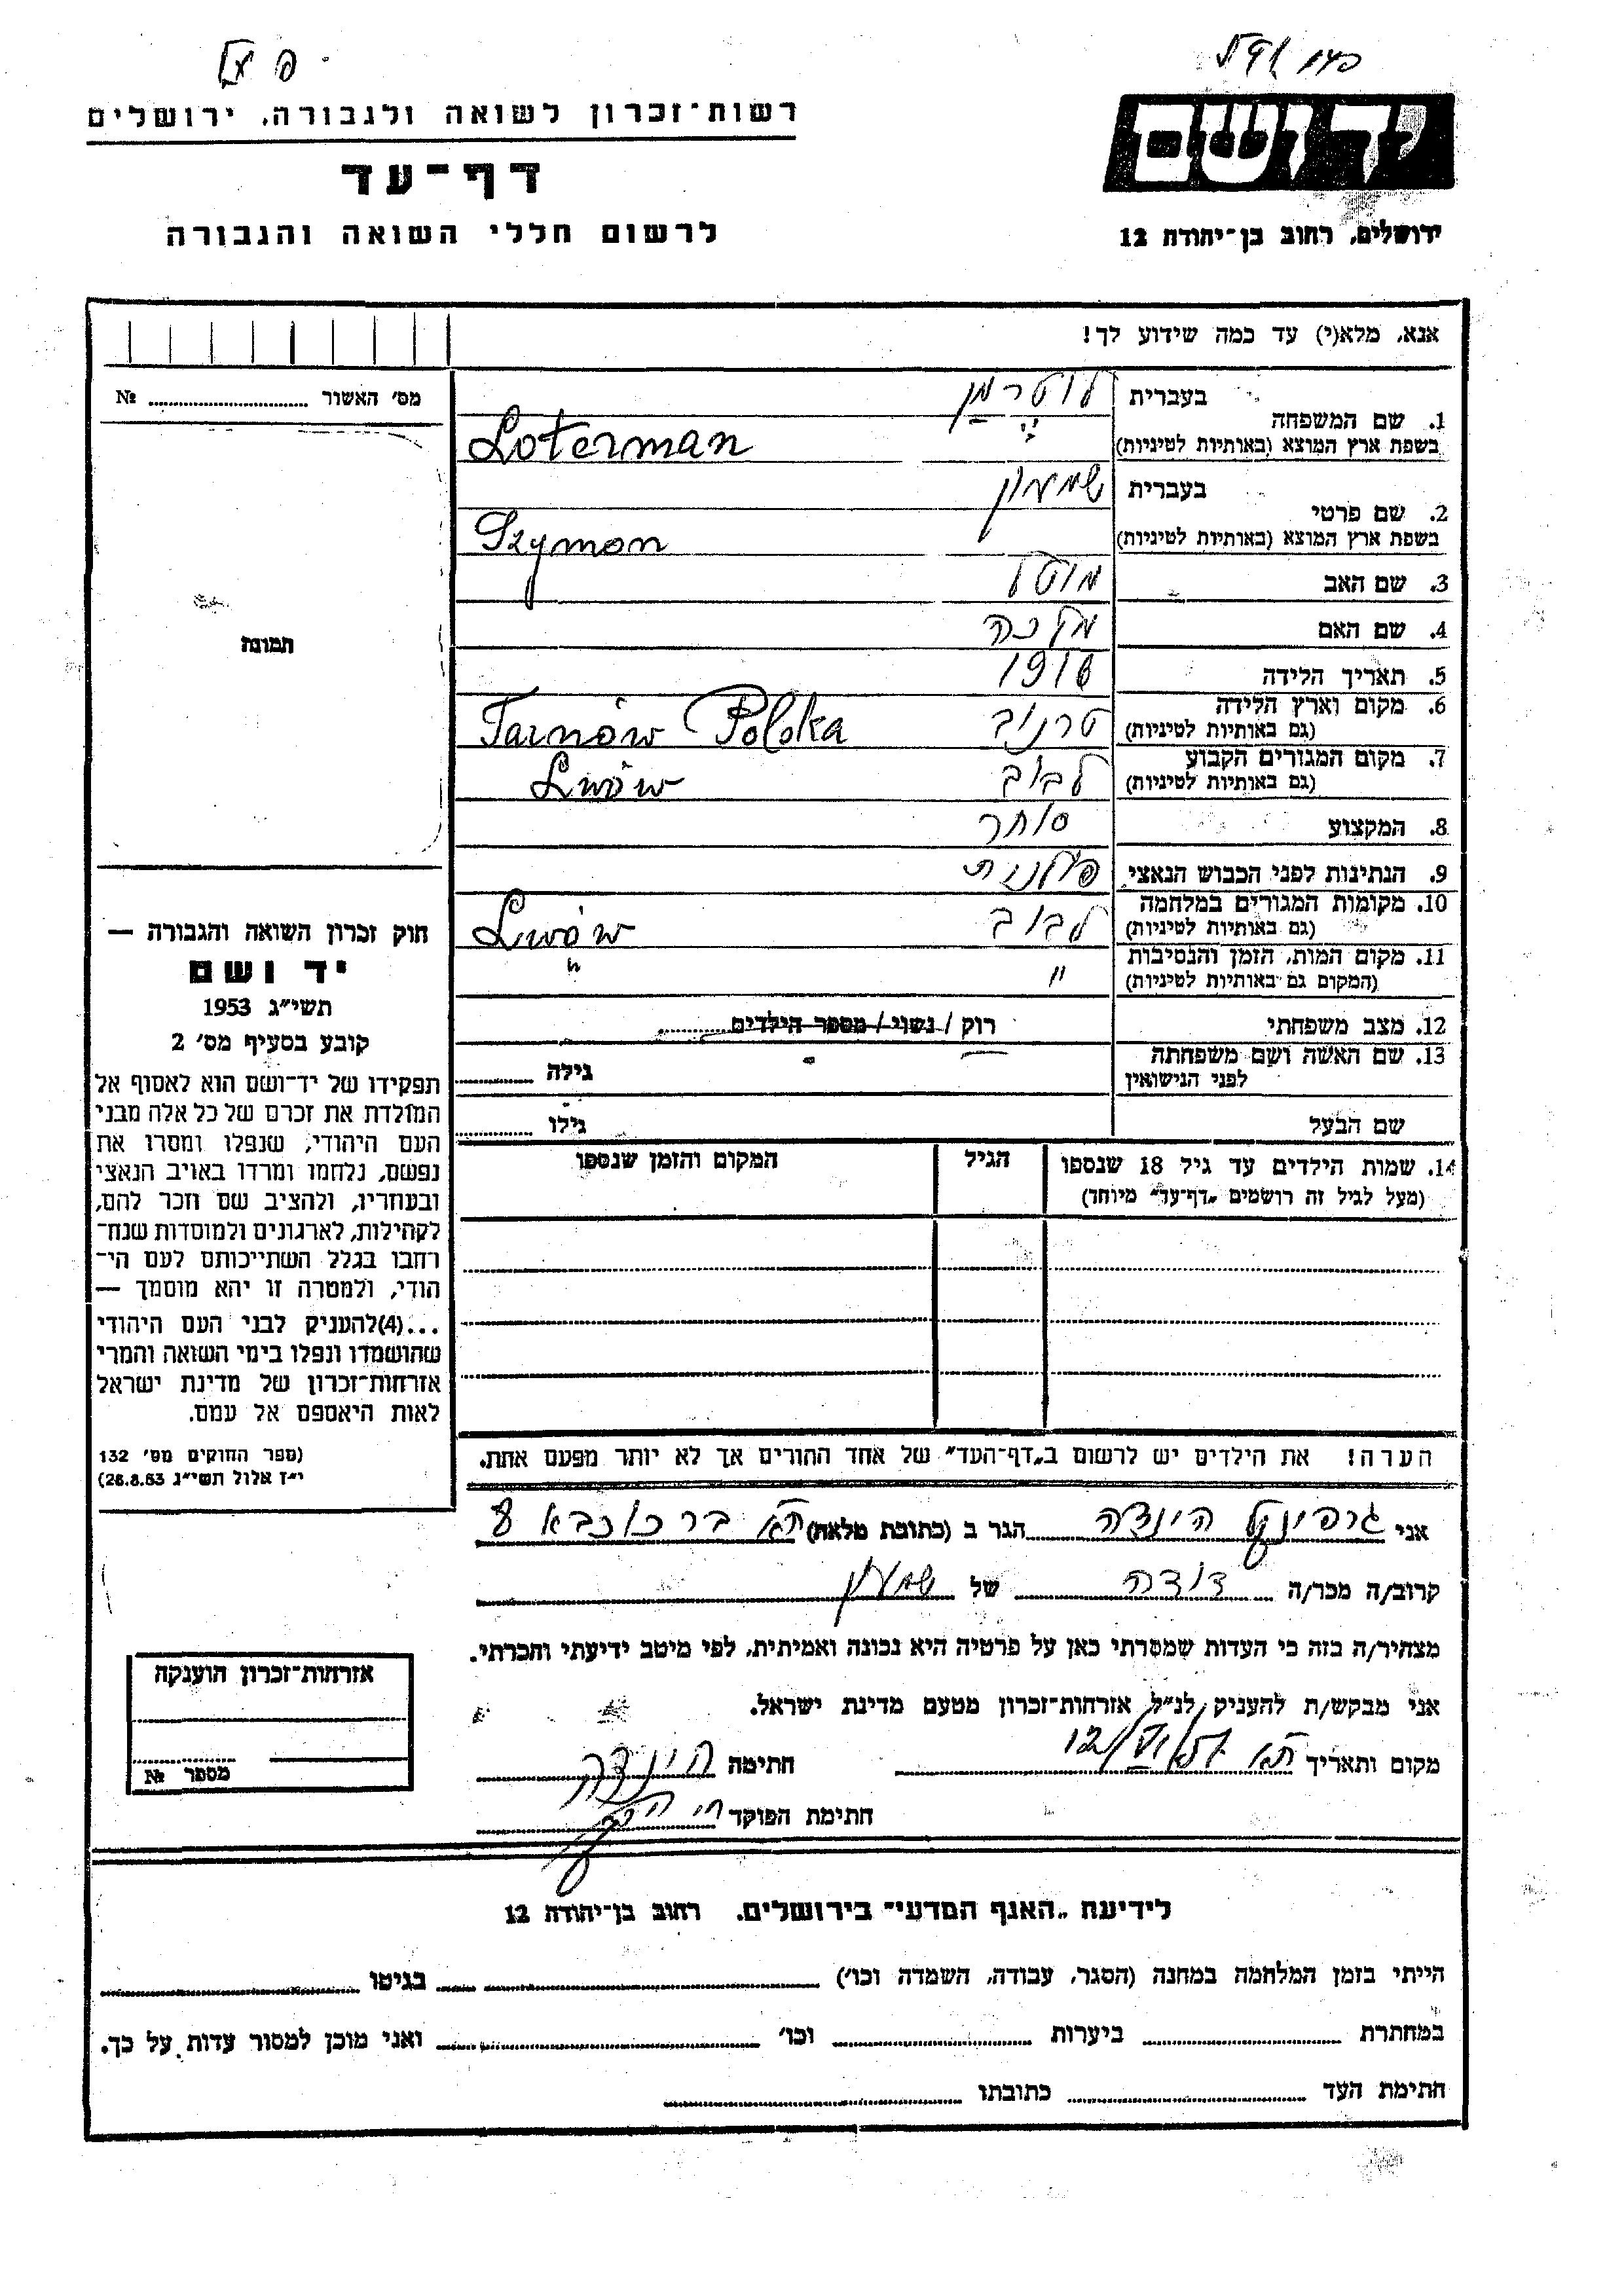 רשות־זכרון לשואה ולגבורה, ירושלים
דף־עד
לרשום חללי השואה והגבורה
ידושם
ירושלים, רחוב בן־יהודה 12
אנא, מלא(י) עד כמה שידוע לך!
מס׳ האשור № 
תמונה
1. שם המשפחה
בעברית לוטרמן
בשפת ארץ המוצא (באותיות לטיניות) Loterman
2. שם פרטי
בעברית שמעון
בשפת ארץ המוצא (באותיות לטיניות) Szymon
3. שם האב
4. שם האם מלכה
5. תאריך הלידה 1916
6. מקום וארץ הלידה
(גם באותיות לטיניות) טרנוב Tarnów Polska
7. מקום המגורים הקבוע
(גם באותיות לטיניות) לבוב Lwów
8. המקצוע סוחר
9. הנתינות לפני הכבוש הנאצי פולנית
10. מקומות המגורים במלחמה
(גם באותיות לטיניות) לבוב Lwów
11. מקום המות, הזמן והנסיבות
(המקום גם באותיות לטיניות) " "
12. מצב משפחתי רוק / נשוי / מספר הילדים
13. שם האשה ושם משפחתה
לפני הנישואין גילה
שם הבעל גילו
14. שמות הילדים עד גיל 18 שנספו
(מעל לגיל זה רושמים „דף־עד" מיוחד)
הגיל
המקום והזמן שנספו
חוק זכרון השואה והגבורה —
יד ושם
תשי״ג 1953
קובע בסעיף מס׳ 2
תפקידו של יד־ושם הוא לאסוף אל
המולדת את זכרם של כל אלה מבני
העם היהודי, שנפלו ומסרו את
נפשם, נלחמו ומרדו באויב הנאצי
ובעוזריו, ולהציב שם וזכר להם,
לקהילות, לארגונים ולמוסדות שנח־
רחבו בגלל השתייכותם לעם הי־
הודי, ולמטרה זו יהא מוסמך —
...(4)להעניק לבני העם היהודי
שהושמדו ונפלו בימי השואה והמרי
אזרחות־זכרון של מדינת ישראל
לאות היאספם אל עמם.
(ספר החוקים מס׳ 132
י״ז אלול תשי״ג 28.8.53)
הערה! את הילדים יש לרשום ב„דף־העד" של אחד ההורים אך לא יותר מפעם אחת.
אני גרפינקל הינדה הגר ב (כתובת מלאה) ת״א בר כוכבא 8
קרוב/ה מכר/ה דודה של שמעון
מצהיר/ה בזה כי העדות שמסרתי כאן על פרטיה היא נכונה ואמיתית, לפי מיטב ידיעתי והכרתי.
אני מבקש/ת להעניק לנ״ל אזרחות־זכרון מטעם מדינת ישראל.
מקום ותאריך ת״א חתימה הינדה
חתימת הפוקד
אזרחות־זכרון הוענקה
מספר №
לידיעת „האגף המדעי" בירושלים, רחוב בן־יהודה 12
הייתי בזמן המלחמה במחנה (הסגר, עבודה, השמדה וכו׳) בגיטו
במחתרת ביערות וכו׳ ואני מוכן למסור עדות על כך.
חתימת העד כתובתו